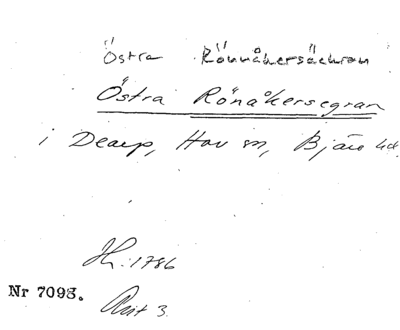 Östra Rönnåkersäckran
Östra Rönåkersegran
i Dearp, Hov sn, Bjäre hd,
Hh. 1786
Nr 7093.
Akt 3.